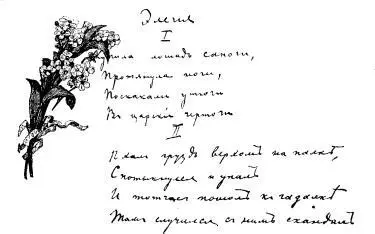 Элегия
I
лошадь сапоги,
Протянула ноги,
Поскакали утюги
Въ царскiе чертоги
II
Ѣхалъ груздь верхомъ на палкѣ,
Спотыкнулся и упалъ
И тотчасъ пошелъ къ гадалкѣ
Тамъ случился съ нимъ скандалъ